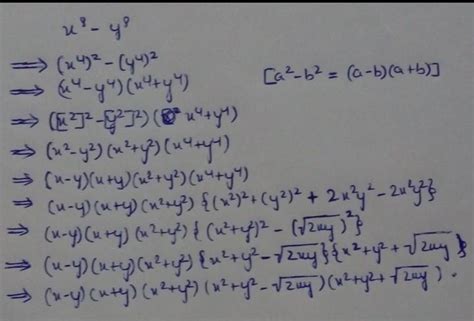 x⁸ - y⁸
⇒ (x⁴)² - (y⁴)²
⇒ (x⁴-y⁴)(x⁴+y⁴) [a²-b² = (a-b)(a+b)]
⇒ ([x²]² - [y²]²)(x⁴+y⁴)
⇒ (x²-y²)(x²+y²)(x⁴+y⁴)
⇒ (x-y)(x+y)(x²+y²)(x⁴+y⁴)
⇒ (x-y)(x+y)(x²+y²){(x²)²+(y²)² + 2x²y² - 2x²y²}
⇒ (x-y)(x+y)(x²+y²){(x²+y²)² - (√2xy)²}
⇒ (x-y)(x+y)(x²+y²){x²+y² - √2xy}{x²+y² + √2xy}
⇒ (x-y)(x+y)(x²+y²)(x²+y²-√2xy)(x²+y²+√2xy).